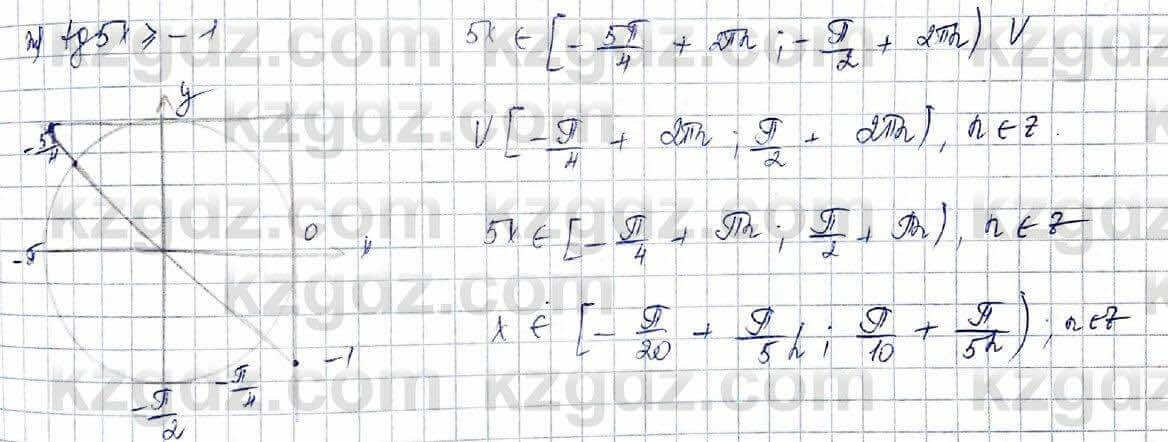 ж) tg5x ≥ -1
5x ∈ [-5π/4 + 2πn; -π/2 + 2πn) ∨
∨ [-π/4 + 2πn; π/2 + 2πn), n ∈ Z.
5x ∈ [-π/4 + πn; π/2 + πn), n ∈ Z
x ∈ [-π/20 + π/5 n; π/10 + π/5n); n ∈ Z
y
-5π/4
-π
0
x
-1
-π/4
-π/2
kzgdz.com